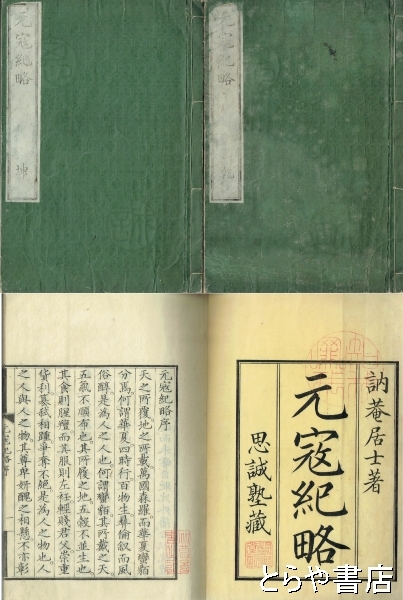 元寇紀略
坤
元寇紀略
乾
訥菴居士著
元寇紀略
思誠塾藏
元寇紀略序
天之所覆地之所載萬國森羅而華夏蠻貊
分焉何謂華夏四時行百物生彝倫叙而風
俗醇是為人之人也何謂蠻貊其所戴之天
五氣不順布也其所履之地五穀不並生也
其食則腥羶而其服則左衽輕賤君父崇重
貨利篡弑相踵爭奪不絕是為人之物也人
之人與人之物其尊卑妍醜之相懸不亦彰
元寇紀略序
とらや書店